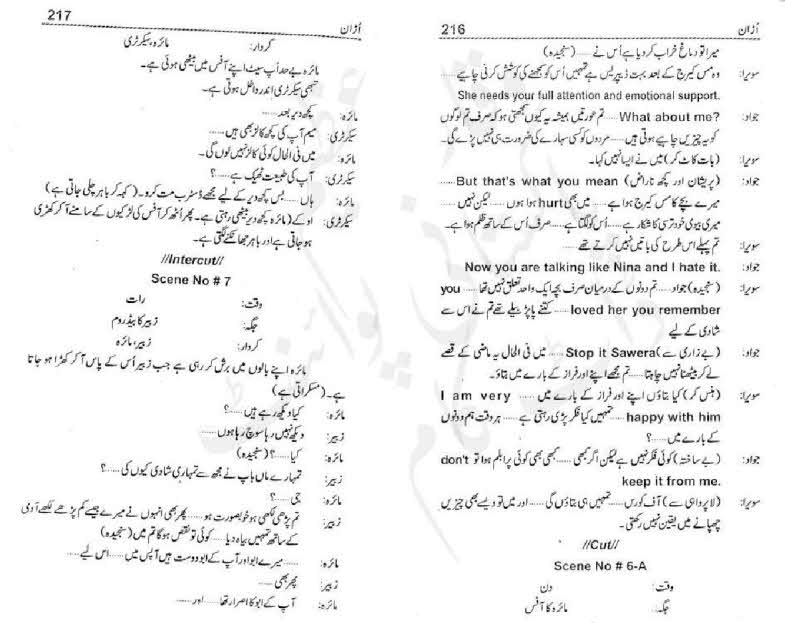 216 اُڑان
میرا تو دماغ خراب کر دیا ہے اُس نے ...... (سنجیدہ)
سویرا: وہ مس کیرج کے بعد بہت ڈیپریس ہے تمہیں اُس کو سمجھنے کی کوشش کرنی چاہیے ......
She needs your full attention and emotional support.
جواد: What about me? ...... تم عورتیں ہمیشہ یہ کیوں سمجھتی ہو کہ صرف تم لوگوں
کو یہ چیزیں چاہیے ہوتی ہیں ...... مردوں کو کسی سہارے کی ضرورت ہی نہیں پڑے گی۔
سویرا: (بات کاٹ کر) میں نے ایسا نہیں کہا۔
جواد: (پریشان اور کچھ ناراض) But that's what you mean ......
میرے بچے کا مس کیرج ہوا ہے ...... میں بھی hurt ہوا ہوں ...... لیکن نہیں ......
میری بیوی خود ترسی کا شکار ہے ...... اُس کو لگتا ہے ...... صرف اُس کے ساتھ ظلم ہوا ہے۔
سویرا: تم پہلے اس طرح کی باتیں نہیں کرتے تھے
جواد: Now you are talking like Nina and I hate it.
سویرا: (سنجیدہ) جواد ...... تم دونوں کے درمیان صرف بچہ ایک واحد تعلق نہیں تھا ...... you
loved her you remember ...... کتنے پاپڑ بیلے تھے تم نے اس سے
شادی کے لیے
جواد: (بے زاری سے) Stop it Sawera ...... میں فی الحال یہ ماضی کے قصے
لے کر بیٹھنا نہیں چاہتا ...... تم مجھے اپنے اور فراز کے بارے میں بتاؤ۔
سویرا: (ہنس کر) کیا بتاؤں اپنے اور فراز کے بارے میں ...... I am very
happy with him ...... تمہیں کیا فکر پڑی رہتی ہے ...... ہر وقت ہم دونوں
کے بارے میں ......؟
جواد: (بے ساختہ) کوئی فکر نہیں ہے لیکن اگر کبھی ...... کبھی بھی کوئی پرابلم ہوا تو don't
keep it from me.
سویرا: (لاپرواہی سے) آف کورس ...... تمہیں ہی بتاؤں گی ...... اور میں تو ویسے بھی چیزیں
چھپانے میں یقین نہیں رکھتی۔
//Cut//
Scene No # 6-A
وقت: دن
جگہ: مائرہ کا آفس
217 اُڑان
کردار: مائرہ، سیکرٹری
مائرہ بے حد اَپ سیٹ اپنے آفس میں بیٹھی ہوئی ہے۔
تبھی سیکرٹری اندر داخل ہوتی ہے۔
مائرہ: کچھ دیر بعد ......
سیکرٹری: میم آپ کی کچھ کالز بھی ہیں ......
مائرہ: میں فی الحال کوئی کالز نہیں لوں گی۔
سیکرٹری: آپ کی طبیعت ٹھیک ہے ......؟
مائرہ: ہاں ...... بس کچھ دیر کے لیے مجھے ڈسٹرب مت کرو۔ (کہہ کر باہر چلی جاتی ہے)
سیکرٹری: او کے (مائرہ کچھ دیر بیٹھی رہتی ہے۔ پھر اُٹھ کر آفس کی کھڑکیوں کے سامنے آ کر کھڑی
ہو جاتی ہے اور باہر جھانکنے لگتی ہے۔
//Intercut//
Scene No # 7
وقت: رات
جگہ: زبیر کا بیڈ روم
کردار: زبیر، مائرہ
مائرہ اپنے بالوں میں برش کر رہی ہے جب زبیر اُس کے پاس آ کر کھڑا ہو جاتا
ہے۔ (مسکراتی ہے)
مائرہ: کیا دیکھ رہے ہیں ......؟
زبیر: دیکھ نہیں رہا سوچ رہا ہوں ......
مائرہ: کیا ......؟ (سنجیدہ)
زبیر: تمہارے ماں باپ نے مجھ سے تمہاری شادی کیوں کی ......؟
مائرہ: جی ......؟
زبیر: تم پڑھی لکھی ہو خوبصورت ہو ...... پھر بھی انہوں نے میرے جیسے کم پڑھے لکھے آدمی
کے ساتھ تمہیں بیاہ دیا ...... کوئی تو نقص ہو گا تم میں (سنجیدہ)
مائرہ: ...... میرے ابو اور آپ کے ابو دوست ہیں آپس میں ...... اس لیے ......
زبیر: پھر بھی ......
مائرہ: آپ کے ابو کا اصرار تھا ...... اور ......